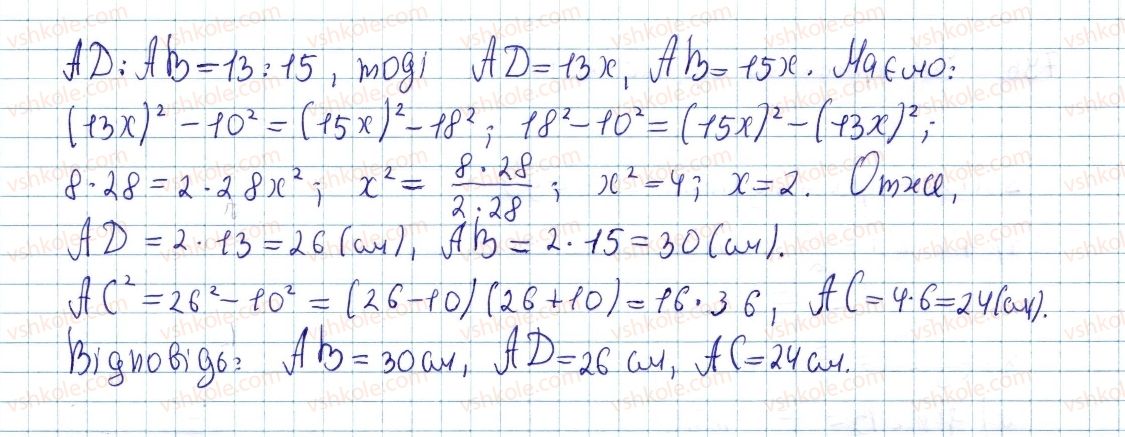 AD : AB = 13 : 15, тоді AD = 13x, AB = 15x. Маємо:
(13x)² − 10² = (15x)² − 18²; 18² − 10² = (15x)² − (13x)²;
8 · 28 = 2 · 28x²; x² = (8 · 28)/(2 · 28); x² = 4; x = 2. Отже,
AD = 2 · 13 = 26 (см), AB = 2 · 15 = 30 (см).
AC² = 26² − 10² = (26 − 10)(26 + 10) = 16 · 36, AC = 4 · 6 = 24 (см).
Відповідь: AB = 30 см, AD = 26 см, AC = 24 см.